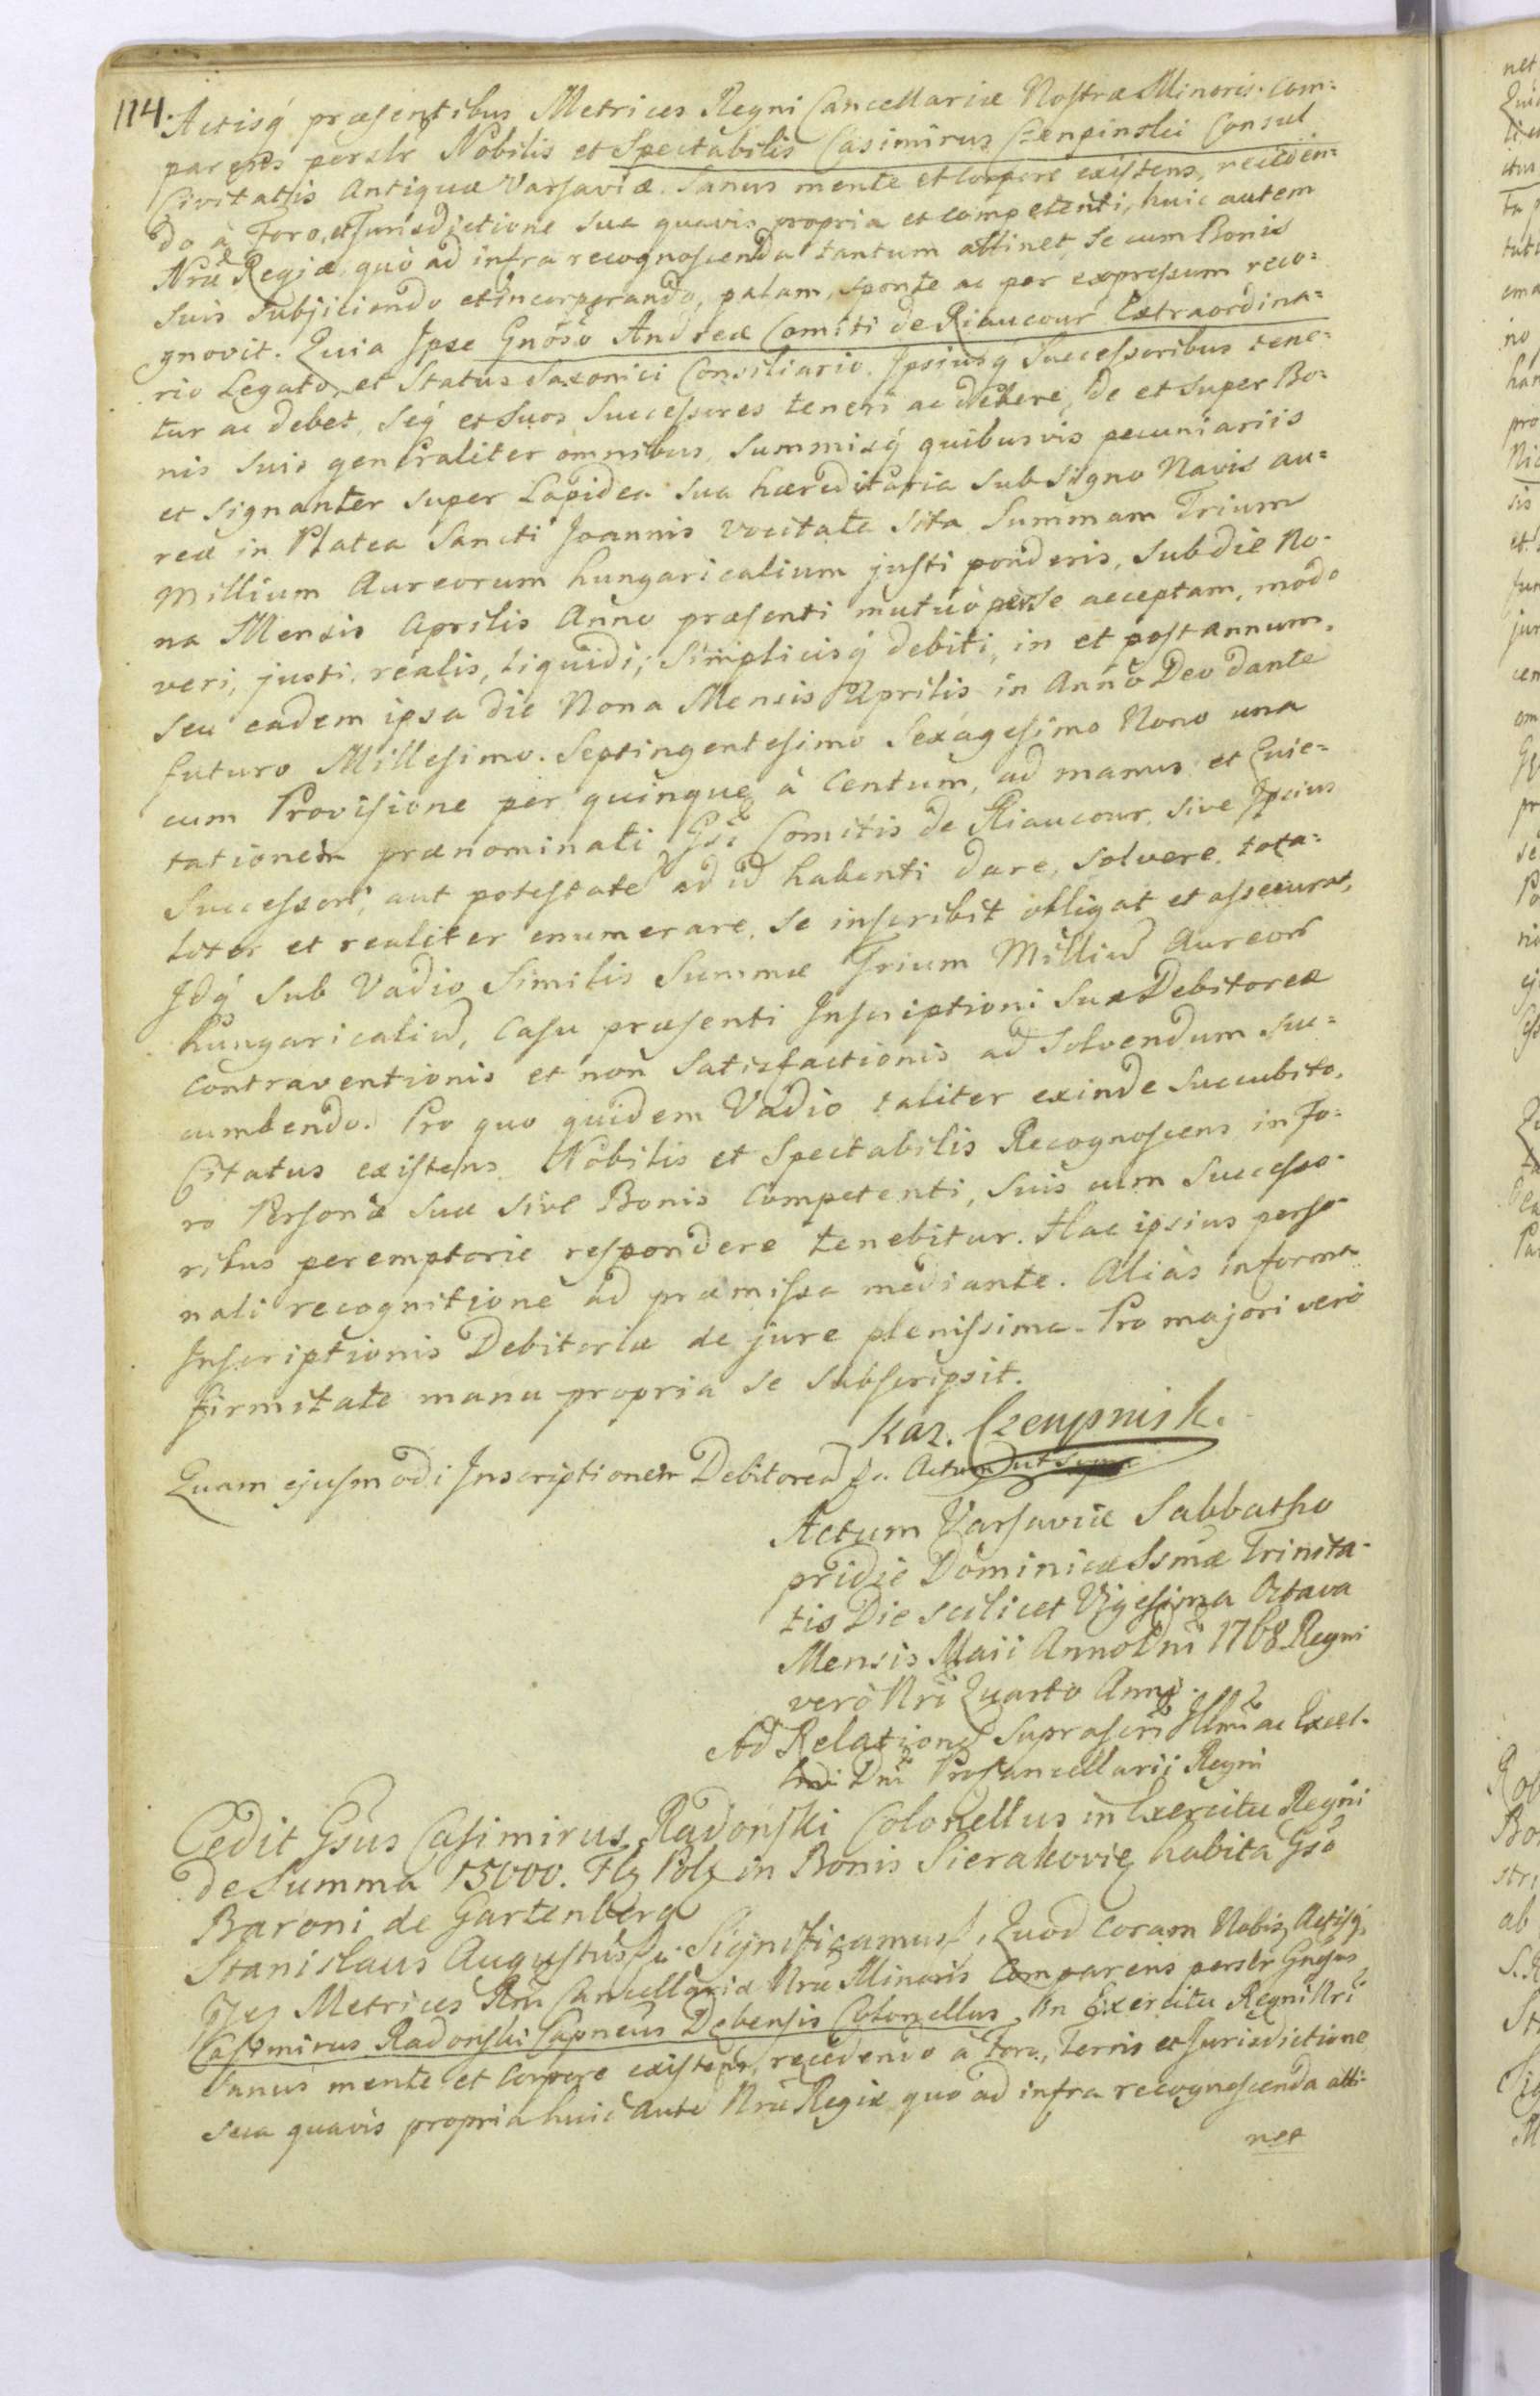 114. Actisq́ præsentibus Metrices Regni Cancellariæ Nostræ Minoris. Com=
parens perslr Nobilis et Spectabilis Casimirus Czenpinski Consul
Civitatis Antiquæ Varsaviæ. Sanus mente et Corpore existens, receden=
do à Foro, et Jurisdictione sua quavis propria et competenti, huic autem
Nræ Regiæ, quò ad infra recognoscenda tantum attinet, se cum Bonis
suis subjiciendo et incorporando, palam, sponte ac per expressum reco=
gnovit. Quia Ipse Gnoso Andreæ Comiti de Riaucour Extraordina=
rio Legato, et Status Saxonici Consiliario. Ipsiusq́ Successoribus tene=
tur ac debet, seq́ et suos Successores teneri ac debere, de et super Bo=
nis suis generaliter omnibus, Summisq́ quibusvis pecuniariis
et signanter super Lapidea sua hæreditaria sub signo Navis au=
reæ in Platea Sancti Joannis vocitata sita Summam Trium
Millium Aureorum hungaricalium justi ponderis, sub die No=
na Mensis Aprilis Anno præsenti mutuò per se acceptam, modo
veri, justi, realis, liquidi, simplicisq́ debiti, in et post annum,
seu eadem ipsa die Nona Mensis Aprilis in Anno Deo dante
futuro Millesimo. Septingentesimo Sexagesimo Nono una
cum Provisione per quinque à Centum, ad manus et Quie=
tationem prænominati Gsi Comitis de Riaucour, sive Ipsius
Successori, aut potestate ad id habenti dare, solvere, tota=
liter et realiter enumerare, se inscribit obligat et assecurat,
Idq́ sub Vadio similis Summæ Trium Milliu Aureor
hungaricaliu, Casu præsenti Inscriptioni suæ Debitoreæ
contraventionis et non satisfactionis ad solvendum suc=
cumbendo. Pro quo quidem Vadio taliter exinde succubito,
Citatus existens Nobilis et Spectabilis Recognoscens in Fo=
ro Personæ suæ sive Bonis Competenti, suis cum Successo=
ribus peremptorie respondere tenebitur. Hac ipsius perso=
nali recognitione ad præmissa mediante. Aliàs in forma
Inscriptionis Debitoriæ de jure plenissima. Pro majori verò
firmitate manu propria se subscripsit.
Kaz. Czenpinsk.
Quam ejusmodi Inscriptionem Debitorea &c. Actum ut supra
Actum Varsaviæ Sabbatho
pridie Dominicæ Ssmæ Trinita=
tis Die scilicet Vigesima Octava
Mensis Maii Anno Dni 1768 Regni
verò Nri Quarto Anno.
Ad Relatione suprascri Illmi ac Excel=
lmi Dni Procancellarii Regni
Cedit Gsus Casimirus Radonski Colonellus in Exercitu Regni
de Summa 15000. Flz Polz in Bonis Sierakovie habita Gso
Baroni de Gartenberg
Stanislaus Augustus &c. Significamus &c. Quod coram Nobis Actisq́
Metrices Rni Cancellariæ Nræ Minoris Comparens perslr Gnosus
Casimirus Radonski Capneus Debensis Colonellus in Exercitu Regni Nri
Sanus mente et Corpore existens, recedendo à Foro, Terris et Jurisdictione
sua quavis propria huic aute Nræ Regiæ quo ad infra recognoscenda atti=
net